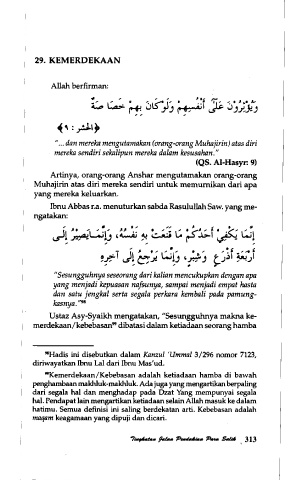 29. KEMERDEKAAN
Allah berfirman:
وَيُؤْثِرُوْنَ عَلَىٰٓ أَنْفُسِهِمْ وَلَوْكَانَ بِهِمْ خَصَاصَةٌ
﴿الحشر : ٩﴾
"...dan mereka mengutamakan (orang-orang Muhajirin) atas diri
mereka sendiri sekalipun mereka dalam kesusahan."
(QS. Al-Hasyr: 9)
Artinya, orang-orang Anshar mengutamakan orang-orang
Muhajirin atas diri mereka sendiri untuk memurnikan dari apa
yang mereka keluarkan.
Ibnu Abbas r.a. menuturkan sabda Rasulullah Saw. yang me-
ngatakan:
إِنَّمَا يَكْفِيْ أَحَدَكُمْ مَا قَنَعَتْ بِهِ نَفْسُهُ، وَإِنَّمَايَصِيْرُ إِلَى
أَرْبَعَةِ أَذْرُعٍ وَشِبْرٍ، وَإِنَّمَا يَرْجِعُ إِلَى آخِرِهِ
"Sesungguhnya seseorang dari kalian mencukupkan dengan apa
yang menjadi kepuasan nafsunya, sampai menjadi empat hasta
dan satu jengkal serta segala perkara kembali pada pamung-
kasnya."98
Ustaz Asy-Syaikh mengatakan, "Sesungguhnya makna ke-
merdekaan/kebebasan99 dibatasi dalam ketiadaan seorang hamba
98Hadis ini disebutkan dalam Kanzul 'Ummal 3/296 nomor 7123,
diriwayatkan Ibnu Lal dari Ibnu Mas'ud.
99Kemerdekaan/Kebebasan adalah ketiadaan hamba di bawah
penghambaan makhluk-makhluk. Ada juga yang mengartikan berpaling
dari segala hal dan menghadap pada Dzat Yang mempunyai segala
hal. Pendapat lain mengartikan ketiadaan selain Allah masuk ke dalam
hatimu. Semua definisi ini saling berdekatan arti. Kebebasan adalah
maqam keagamaan yang dipuji dan dicari.
Tingkatan Jalan Pendakian Para Salik 313